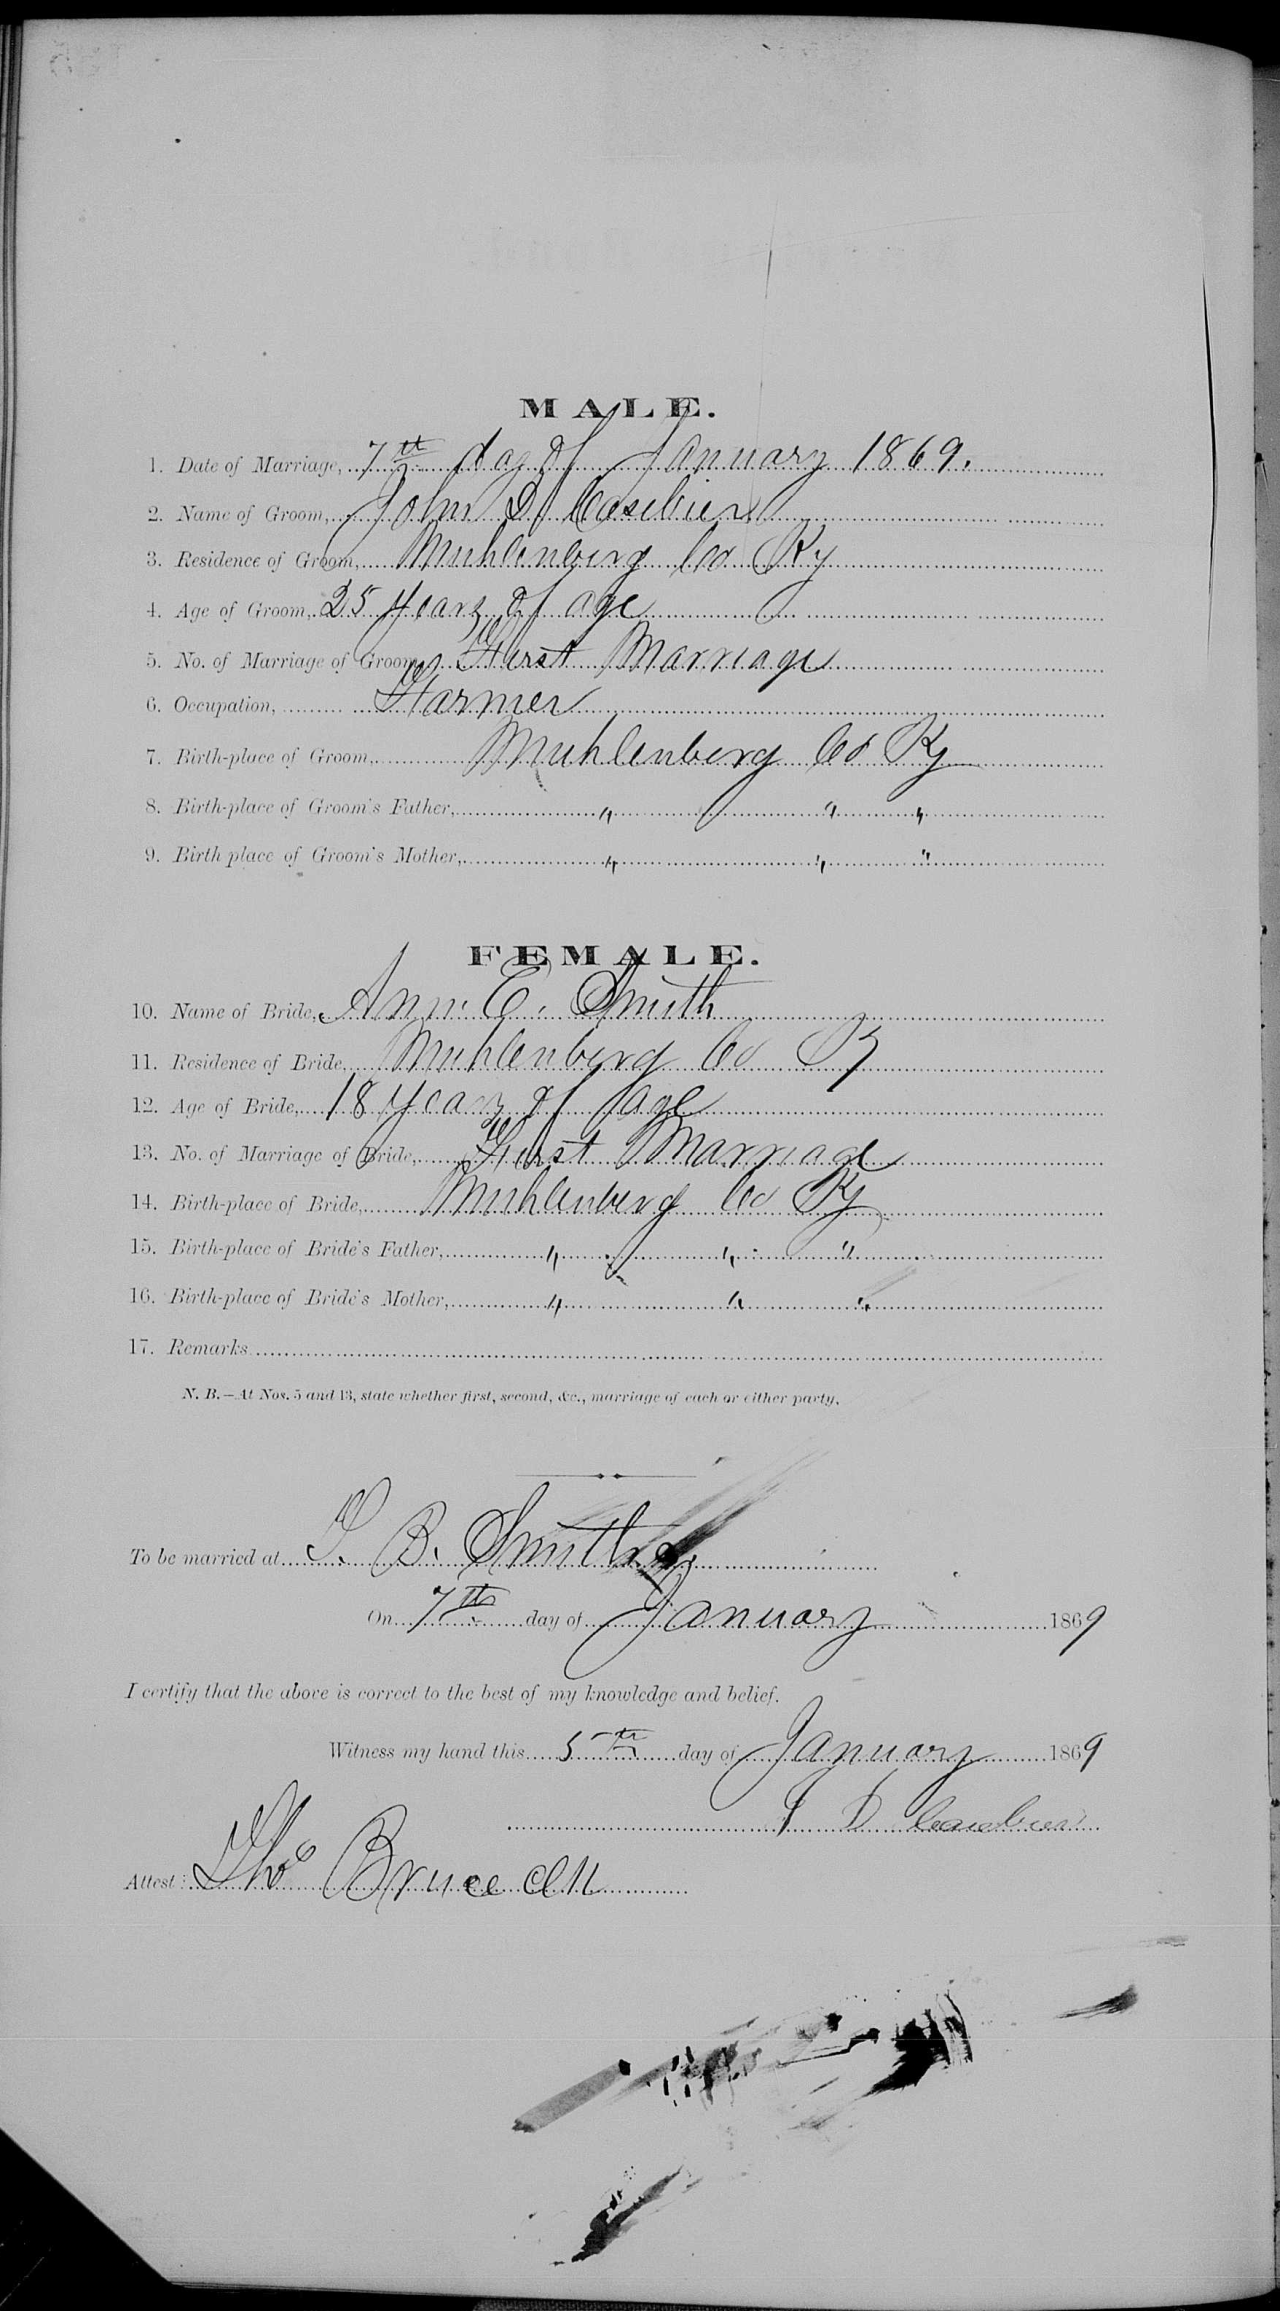 MALE.
1. Date of Marriage, 7th day of January 1869.
2. Name of Groom, John D. Casebier
3. Residence of Groom, Muhlenberg Co Ky
4. Age of Groom, 25 years of age
5. No. of Marriage of Groom, First Marriage
6. Occupation, Farmer
7. Birth-place of Groom, Muhlenberg Co Ky
8. Birth-place of Groom's Father, " " "
9. Birth place of Groom's Mother, " " "
FEMALE.
10. Name of Bride, Ann. E. Smith
11. Residence of Bride, Muhlenberg Co Ky
12. Age of Bride, 18 years of age
13. No. of Marriage of Bride, First Marriage
14. Birth-place of Bride, Muhlenberg Co Ky
15. Birth-place of Bride's Father, " " "
16. Birth-place of Bride's Mother, " " "
17. Remarks
N. B.—At Nos. 5 and 13, state whether first, second, &c., marriage of each or either party.
To be married at B. Smith
On 7th day of January 1869
I certify that the above is correct to the best of my knowledge and belief.
Witness my hand this 5th day of January 1869
J D Casebier
Attest: Thos Bruce Clk